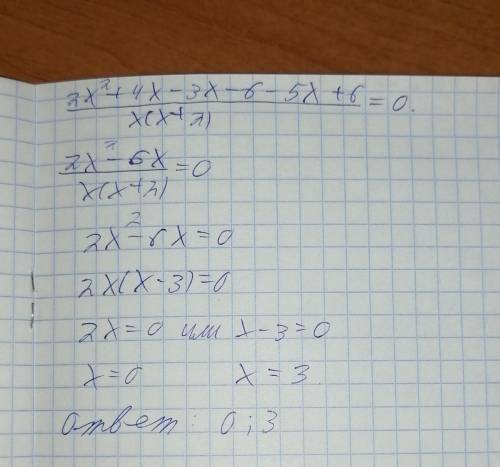 2x²+4x-3x-6-5x+6/x(x+2)=0.
2x²-6x/x(x+2)=0
2x²-6x=0
2x(x-3)=0
2x=0 или x-3=0
x=0 x=3
ответ: 0;3